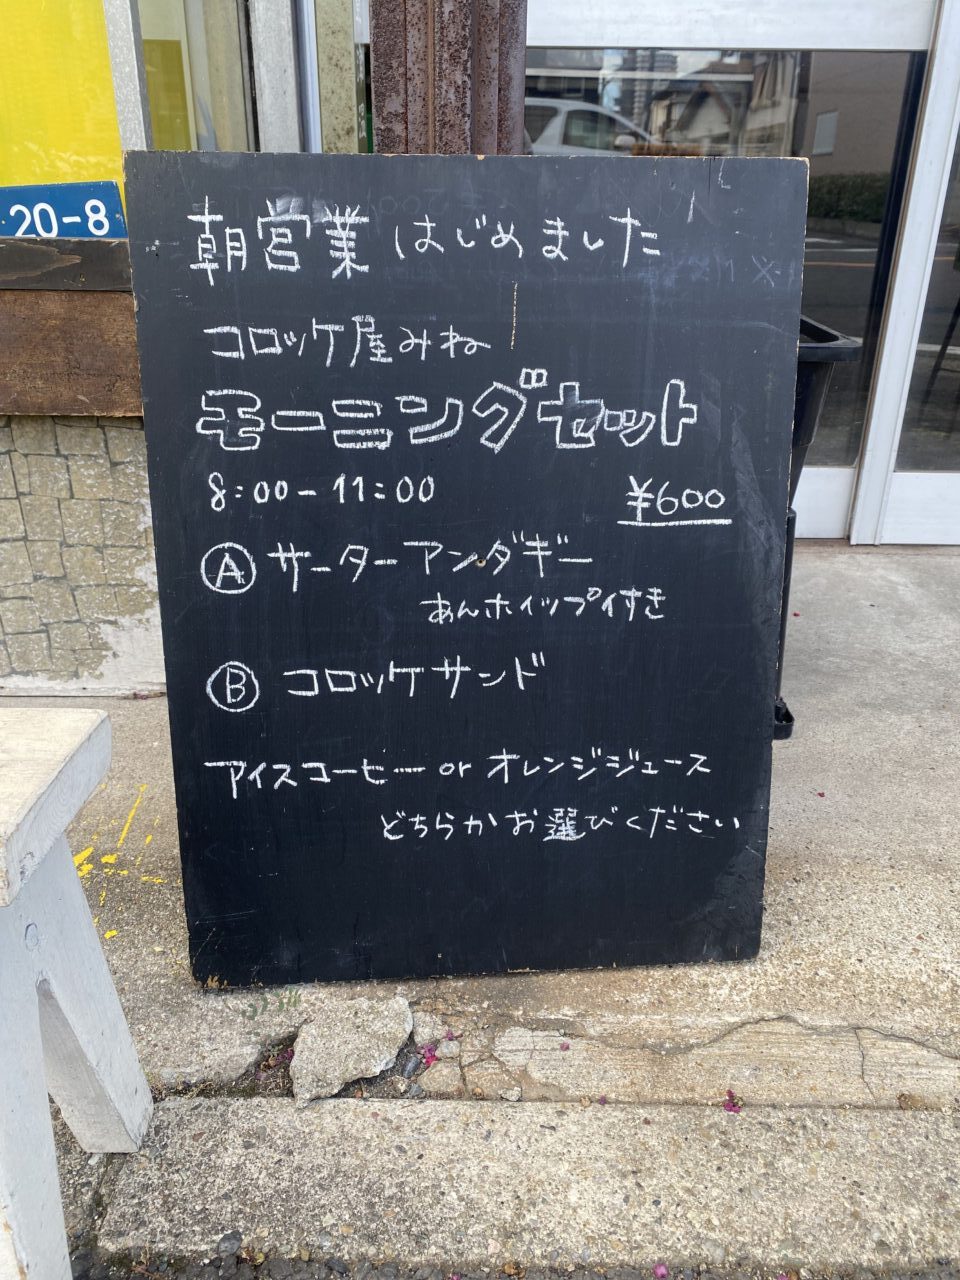 20-8
朝営業はじめました
コロッケ屋みね
モーニングセット
8:00-11:00
¥600
Ⓐ サーターアンダギー
あんホイップ付き
Ⓑ コロッケサンド
アイスコーヒー or オレンジジュース
どちらかお選びください